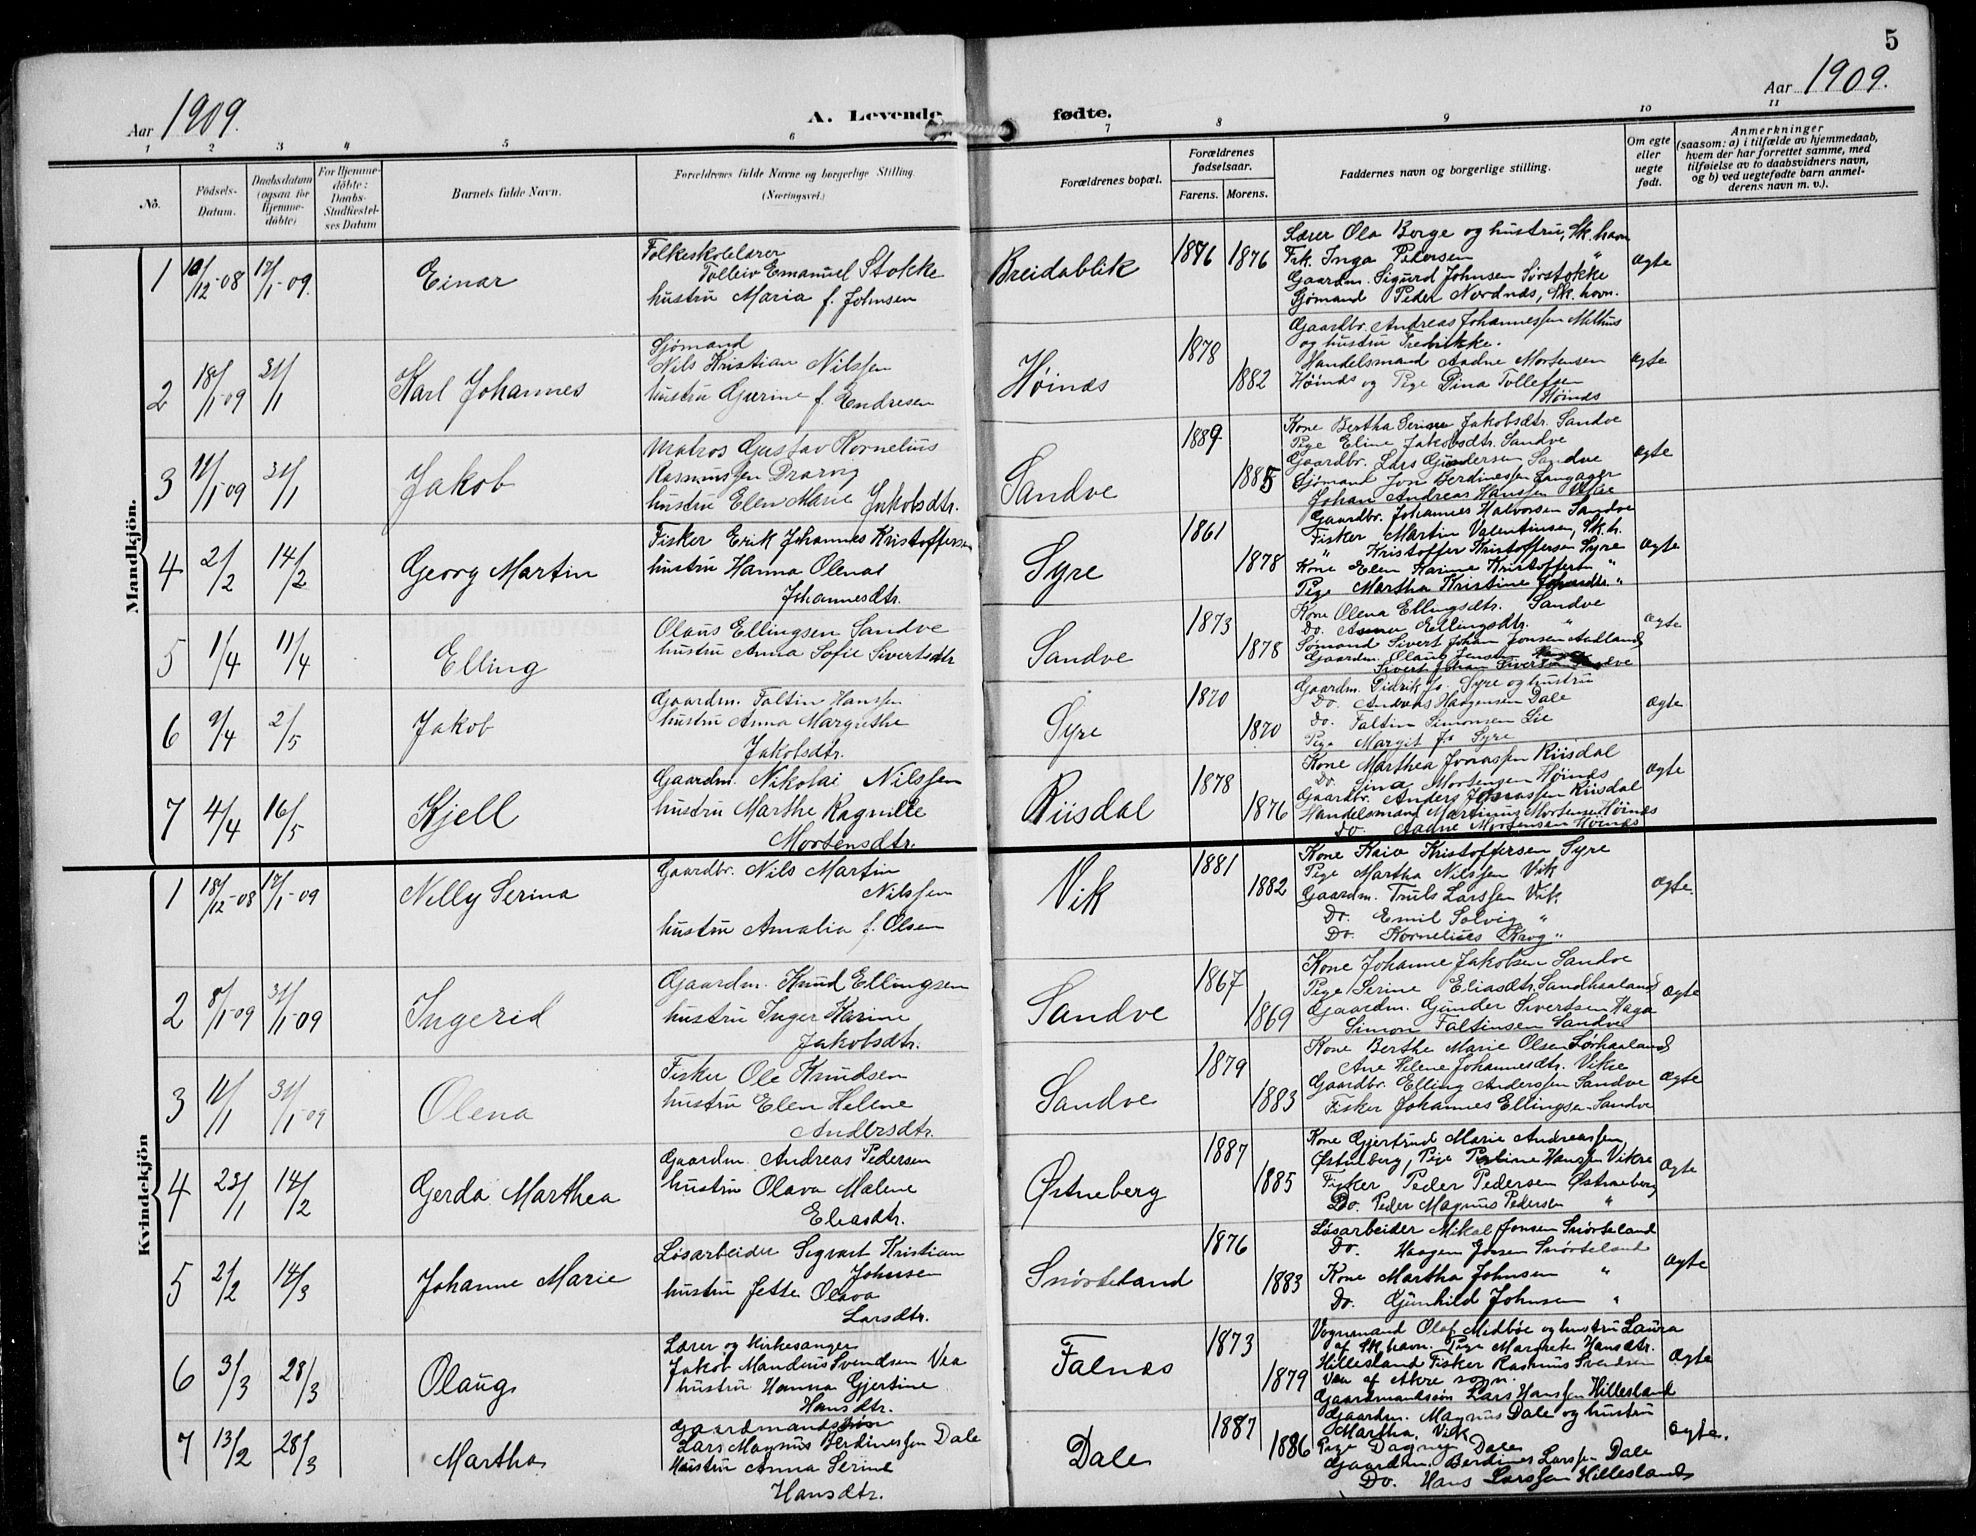 5
Aar 1909.
A. Levende fødte.
Aar 1909.
1 2 3 4 5 6 7 8 9 10 11
No.
Födsels-Datum.
Daabsdatum (ogsaa för Hjemme-döbte)
For Hjemme-döbte: Daabs-Stadfæstel-ses Datum
Barnets fulde Navn.
Forældrenes fulde Navne og borgerlige Stilling. (Næringsvei.)
Forældrenes bopæl.
Forældrenes fødselsaar.
Farens. Morens.
Faddernes navn og borgerlige stilling.
Om egte eller uegte født.
Anmerkninger
(saasom: a) i tilfælde av hjemmedaab,
hvem der har forrettet samme, med
tilføielse av to daabsvidners navn,
og b) ved uegtefødte barn anmel-
derens navn m. v.).
Mandkjön.
1 10/12-08 17/1-09. Einar
Folkeskolelærer
Tolleiv Emanuel Stokke
hustru Maria f. Johnsen
Breidablik 1876 1876
Lærer Ola Borge og hustru, Sk.havn
Frk. Inga Pedersen "
Gaardm. Sigurd Johnsen Sørstokke
Sjømand Peder Nordnæs, Sk.havn.
Ægte
2 18/1-09 31/1 Karl Johannes
Sjømand
Nils Kristian Nilssen
hustru Gjerine f. Endresen
Høinæs 1878 1882
Gaardbr. Andreas Johannessen Mithus
og hustru Fredrikke.
Handelsmand Aadne Mortensen
Høinæs og Pige Dina Tollefsen
Høinæs
Ægte
3 11/1-09 31/1 Jakob
Matros Gustav Kornelius
Rasmussen
hustru Elen Marie Jakobsdtr.
Sandve 1889 1885
Kone Bertha Serine Jakobsdtr. Sandve
Pige Eline Jakobsdtr. Sandve
Gaardbr. Lars Gundersen Sandve
Sjømand Jon Berdinessen Langager
Johan Andreas Hanssen Vikre
Ægte
4 2/2 14/2 Georg Martin
Fisker Erik Johannes Kristoffersen
hustru Hanna Olena
Johannesdtr.
Syre 1861 1878
Gaardbr. Johannes Halvorsen Sandve
Fisker Martin Valentinsen, Sk.h.
" Kristoffer Kristoffersen Syre
Kone Elen Karine Kristoffers. "
Pige Martha Kristine "
Ægte
5 1/4 11/4 Elling
Olaus Ellingsen Sandve
hustru Anna Sofie Sivertsdtr
Sandve 1873 1878
Kone Olena Ellingsdtr. Sandve
Do. Anna Ellingsdtr. "
Sømand Sivert Johan Jonsen Aadland
Gaardm. Olaus Jensen
Sivert Johan Sivertsen Sandve
Ægte
6 9/4 2/5 Jakob
Gaardm. Faltin Hanssen
hustru Anna Margrethe
Jakobsdtr.
Syre 1870 1870
Gaardm. Didrik Js. Syre og hustru
Do. Andreas Haagensen Dale
Do. Faltin Simonsen Lie
Pige Margit Js Syre
Ægte
7 4/4 16/5 Kjell
Gaardm. Nikolai Nilssen
hustru Marthe Ragnille
Mortensdtr.
Riisdal 1878 1876
Kone Marthea Jonassen Riisdal
Do. Sina Mortensen Høinæs
Gaardbr. Anders Jonassen Riisdal
Handelsmand Martinus Mortensen Høinæs
Do. Aadne Mortensen Høinæs
Ægte
Kvindekjön
1 18/12-08 17/1-09 Nelly Serina
Gaardbr. Nils Martin
Nilssen
hustru Amalia f. Olsen
Vik 1881 1882
Kone Kaia Kristoffersen Syre
Pige Martha Nilssen Vik
Gaardm. Truls Larssen Vik
Do. Emil Solvig "
Do. Kornelius Krog "
Ægte.
2 8/1-09 31/1-09 Ingerid
Gaardm. Knud Ellingsen
hustru Inger Karine
Jakobsdtr.
Sandve 1867 1869
Kone Johanne Jakobsen Sandve
Pige Serine Eliasdtr. Sandhaaland
Gaardm. Gunder Sivertsen Haga
Simon Faltinsen Sandve
Ægte
3 11/1 31/1-09 Olena
Fisker Ole Knudsen
hustru Elen Helene
Andersdtr.
Sandve 1879 1883
Kone Berthe Marie Olsen Sørhaaland
Ane Helene Johannesdtr. Vikre
Gaardbr. Elling Anderssen Sandve
Fisker Johannes Ellingsen Sandve
Ægte
4 23/1 14/2 Gerda Marthea
Gaardm. Andreas Pedersen
hustru Olava Malene
Eliasdtr.
Østneberg 1887 1885
Kone Gjertrud Marie Andreassen
Østneberg, Pige Pauline Hanssen Vikre
Fisker Peder Pedersen Østneberg
Do. Peder Magnus Pedersen "
Ægte
5 2/2 14/3 Johanne Marie
Løsarbeider Sigvart Kristian
Johnsen
hustru Jette Olava
Larsdtr.
Snørteland 1876 1883
Løsarbeider Mikal Jonsen Snørteland
Do. Haagen Jonsen Snørteland
Kone Martha Johnsen "
Do. Gunhild Johnsen "
Ægte
6 3/3 28/3 Olaug
Lærer og Kirkesanger
Jakob Mandius Svendsen Vea
hustru Hanna Gjertine
Hansdtr.
Falnæs 1873 1879
Vognmand Olaf Midbøe og hustru Laura
af Sk.havn. Pige Margrete Hansdtr.
Hillesland Fisker Rasmus Svendsen
Vea af Akre sogn.
Gaardmandssøn Lars Hanssen Hillesland
Ægte
7 13/2 28/3 Martha
Gaardmandssøn
Lars Magnus Berdinessen Dale
Hustru Anna Serine
Hansdtr.
Dale 1887 1886
Gaardm. Magnus Dale og hustru
Martha. Vik
Pige Dagny Dale
Gaardm. Berdines Larssen Dale
Do. Hans Larssen Hillesland
Ægte.